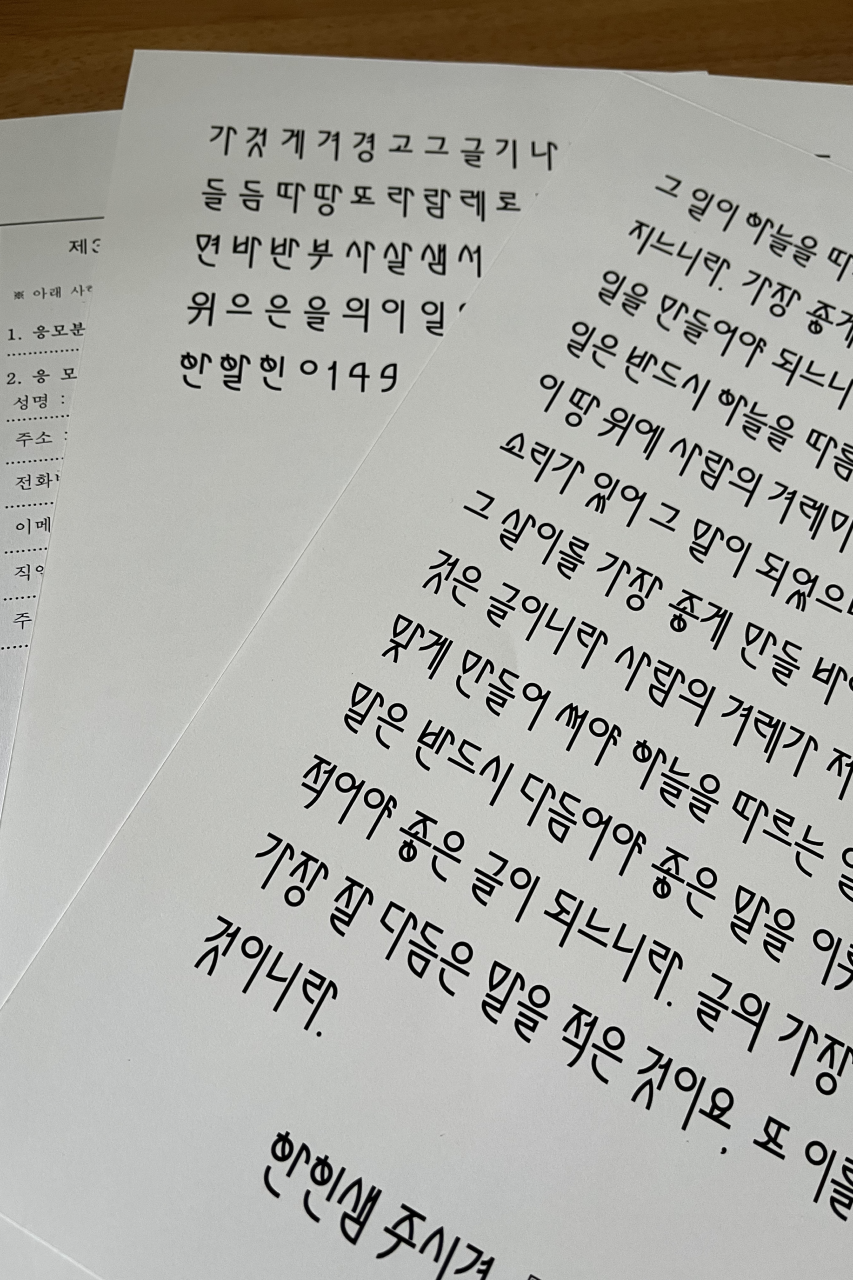 제3
※ 아래 사
1. 응모분
2. 응 모
성명 :
주소 :
전화
이메
직
주
가 것 게 겨 경 고 그 글 기 나
들 듬 따 땅 또 라 람 레 로
면 바 반 부 사 살 샘 서
위 으 은 을 의 이 일
한 할 힌 0 1 4 9
그 일이 하늘을 따
지느니라. 가장 좋게
일을 만들어야 되느니
일은 반드시 하늘을 따름
이 땅 위에 사람의 겨레마
소리가 있어 그 말이 되었으
그 살이를 가장 좋게 만들 바
것은 글이니라 사람의 겨레가 저
맞게 만들어 써야 하늘을 따르는 일
말은 반드시 다듬어야 좋은 말을 이
적어야 좋은 글이 되느니라. 글의 가장
가장 잘 다듬은 말을 적은 것이요, 또 이를
것이니라.
한힌샘 주시경